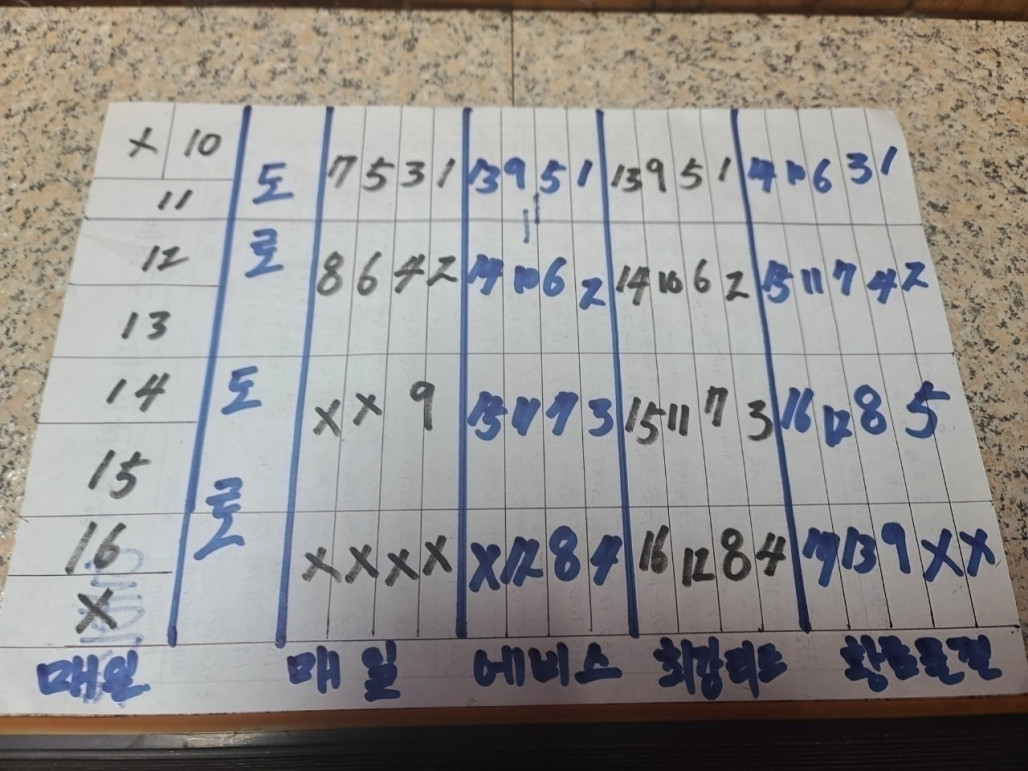 X 10 도 7 5 3 1 13 9 5 1 13 9 5 1 14 10 6 3 1
11
12 로 8 6 4 2 14 10 6 2 14 10 6 2 15 11 7 4 2
13
14 도 X X 9 15 11 7 3 15 11 7 3 16 12 8 5
15
16 로 X X X X X 12 8 4 16 12 8 4 17 13 9 X X
X
매일 매일 에비스 최강리드